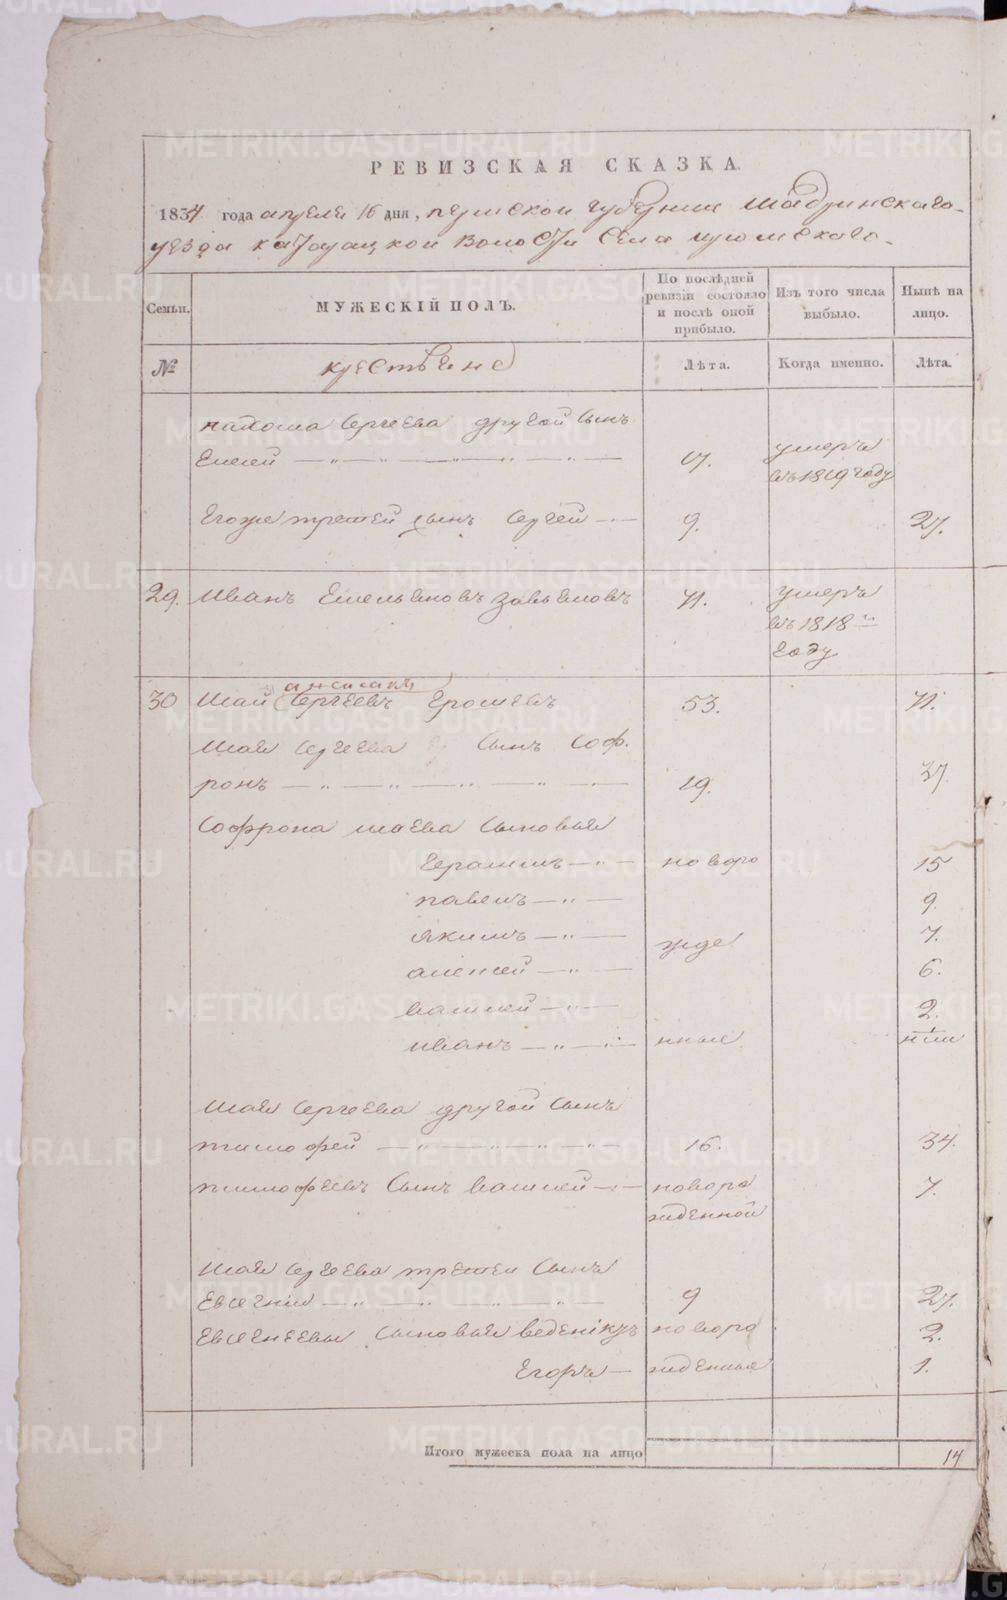 РЕВИЗСКАЯ СКАЗКА.
1834 года апреля 16 дня, пермской губернии Шадринскаго
уезда катайской волости Села
Семьи. МУЖЕСКІЙ ПОЛЪ. По послѣдней ревизіи состояло и послѣ оной прибыло. Изъ того числа выбыло. Нынѣ на лицо.
№ крестьяне Лѣта. Когда именно. Лѣта.
Сергеева другой Сынъ
Елисей 17. умеръ въ 1819 году
Егоже третей сынъ Сергей 9. 27.
29. Иванъ Емельяновъ Завьяловъ 71. умеръ въ 1818 м году
30 Исай Сергеевъ 53. 71.
Исая Сергеева Сынъ Соф.
ронъ 19. 37
Софрона исаева Сыновья
Герасимъ новоро 15
павелъ 9.
якимъ жде 7.
алексей 6.
василей 2.
иванъ нные
Исая Сергеева другой Сынъ
тимофей 16. 34.
тимофеевъ Сынъ василей новоро 7.
жденной
Исая Сергеева третей Сынъ
Евсегней 9 27.
Евсегнеевы Сыновья ведениктъ новоро 2.
Егоръ жденные 1.
Итого мужеска пола на лицо 14
METRIKI.GASO-URAL.RU